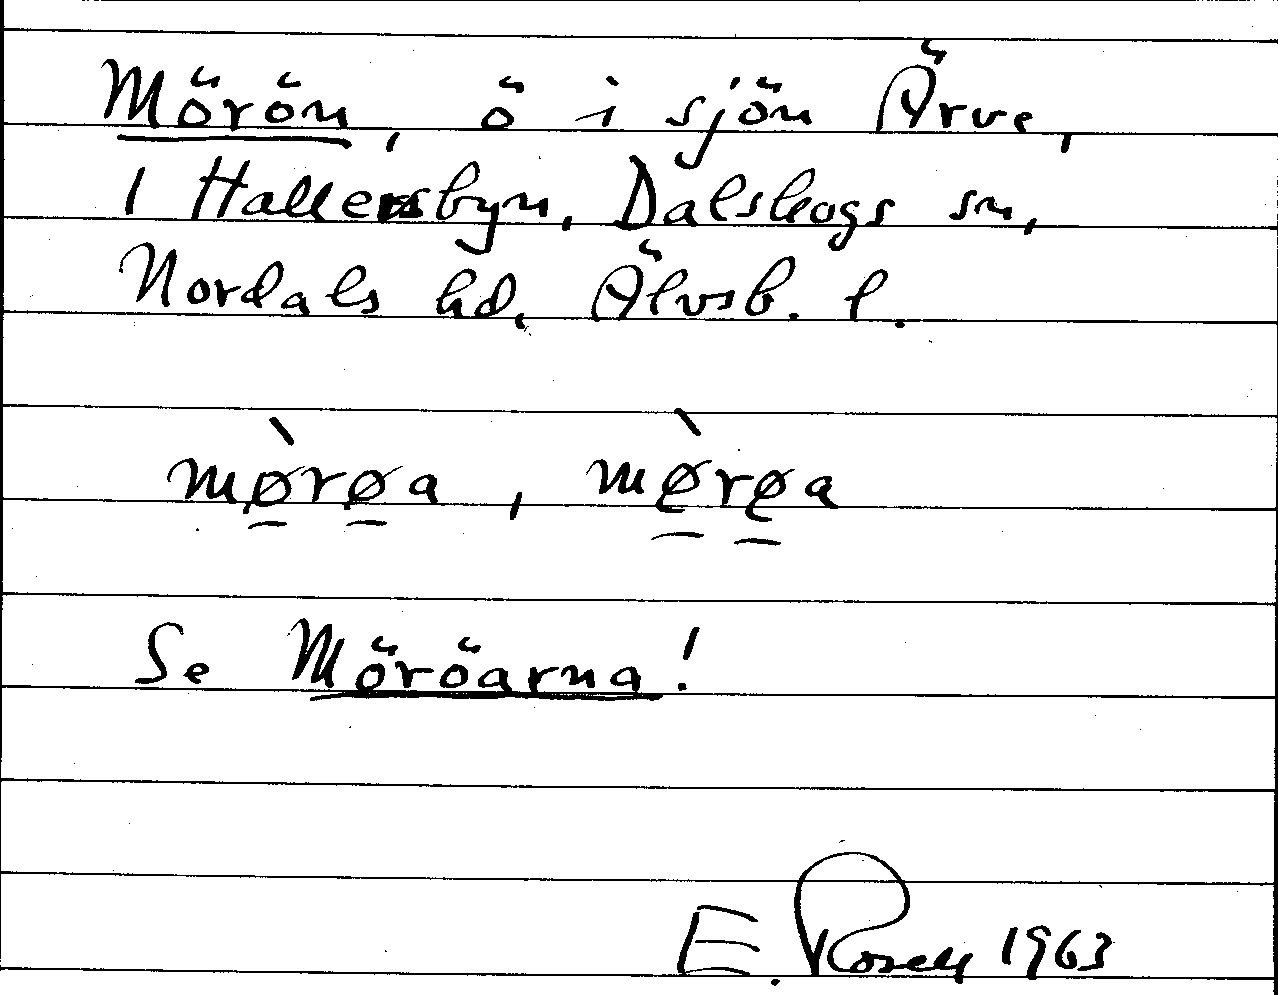 Mörön, ö i sjön Ärve,
i Hallersbyn, Dalskogs sn,
Nordals hd, Älvsb. l.
mø̱̀rø̱a, mø̱̀rø̱a
Se Möröarna!
E. Rosell 1963